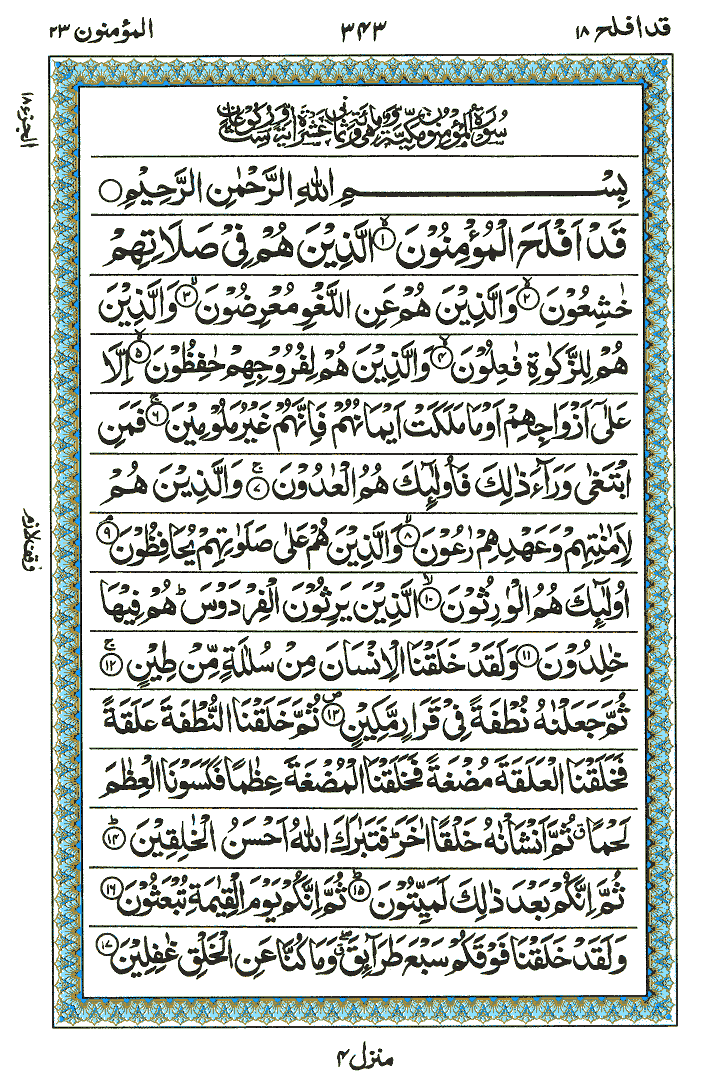 قد افلح ۱۸
۳۴۳
المؤمنون ۲۳
الجزء ۱۸
سُوْرَةُ الْمُؤْمِنُوْنَ مَكِّيَّةٌ
بِسْمِ اللّٰهِ الرَّحْمٰنِ الرَّحِيْمِ
قَدْ اَفْلَحَ الْمُؤْمِنُوْنَ ۙ﴿۱﴾ الَّذِيْنَ هُمْ فِيْ صَلَاتِهِمْ
خٰشِعُوْنَ ۙ﴿۲﴾ وَالَّذِيْنَ هُمْ عَنِ اللَّغْوِ مُعْرِضُوْنَ ۙ﴿۳﴾ وَالَّذِيْنَ
هُمْ لِلزَّكٰوةِ فٰعِلُوْنَ ۙ﴿۴﴾ وَالَّذِيْنَ هُمْ لِفُرُوْجِهِمْ حٰفِظُوْنَ ۙ﴿۵﴾ اِلَّا
عَلٰٓى اَزْوَاجِهِمْ اَوْ مَا مَلَكَتْ اَيْمَانُهُمْ فَاِنَّهُمْ غَيْرُ مَلُوْمِيْنَ ۚ﴿۶﴾ فَمَنِ
ابْتَغٰى وَرَآءَ ذٰلِكَ فَاُولٰٓئِكَ هُمُ الْعٰدُوْنَ ۚ﴿۷﴾ وَالَّذِيْنَ هُمْ
لِاَمٰنٰتِهِمْ وَعَهْدِهِمْ رٰعُوْنَ ۙ﴿۸﴾ وَالَّذِيْنَ هُمْ عَلٰى صَلَوٰتِهِمْ يُحَافِظُوْنَ ۘ﴿۹﴾
وقف لازم
اُولٰٓئِكَ هُمُ الْوٰرِثُوْنَ ۙ﴿۱۰﴾ الَّذِيْنَ يَرِثُوْنَ الْفِرْدَوْسَ ؕ هُمْ فِيْهَا
خٰلِدُوْنَ ﴿۱۱﴾ وَلَقَدْ خَلَقْنَا الْاِنْسَانَ مِنْ سُلٰلَةٍ مِّنْ طِيْنٍ ۚ﴿۱۲﴾
ثُمَّ جَعَلْنٰهُ نُطْفَةً فِيْ قَرَارٍ مَّكِيْنٍ ۪﴿۱۳﴾ ثُمَّ خَلَقْنَا النُّطْفَةَ عَلَقَةً
فَخَلَقْنَا الْعَلَقَةَ مُضْغَةً فَخَلَقْنَا الْمُضْغَةَ عِظٰمًا فَكَسَوْنَا الْعِظٰمَ
لَحْمًا ۗ ثُمَّ اَنْشَاْنٰهُ خَلْقًا اٰخَرَ ؕ فَتَبٰرَكَ اللّٰهُ اَحْسَنُ الْخٰلِقِيْنَ ؕ﴿۱۴﴾
ثُمَّ اِنَّكُمْ بَعْدَ ذٰلِكَ لَمَيِّتُوْنَ ؕ﴿۱۵﴾ ثُمَّ اِنَّكُمْ يَوْمَ الْقِيٰمَةِ تُبْعَثُوْنَ ﴿۱۶﴾
وَلَقَدْ خَلَقْنَا فَوْقَكُمْ سَبْعَ طَرَآئِقَ ۖ وَمَا كُنَّا عَنِ الْخَلْقِ غٰفِلِيْنَ ﴿۱۷﴾
منزل ۴